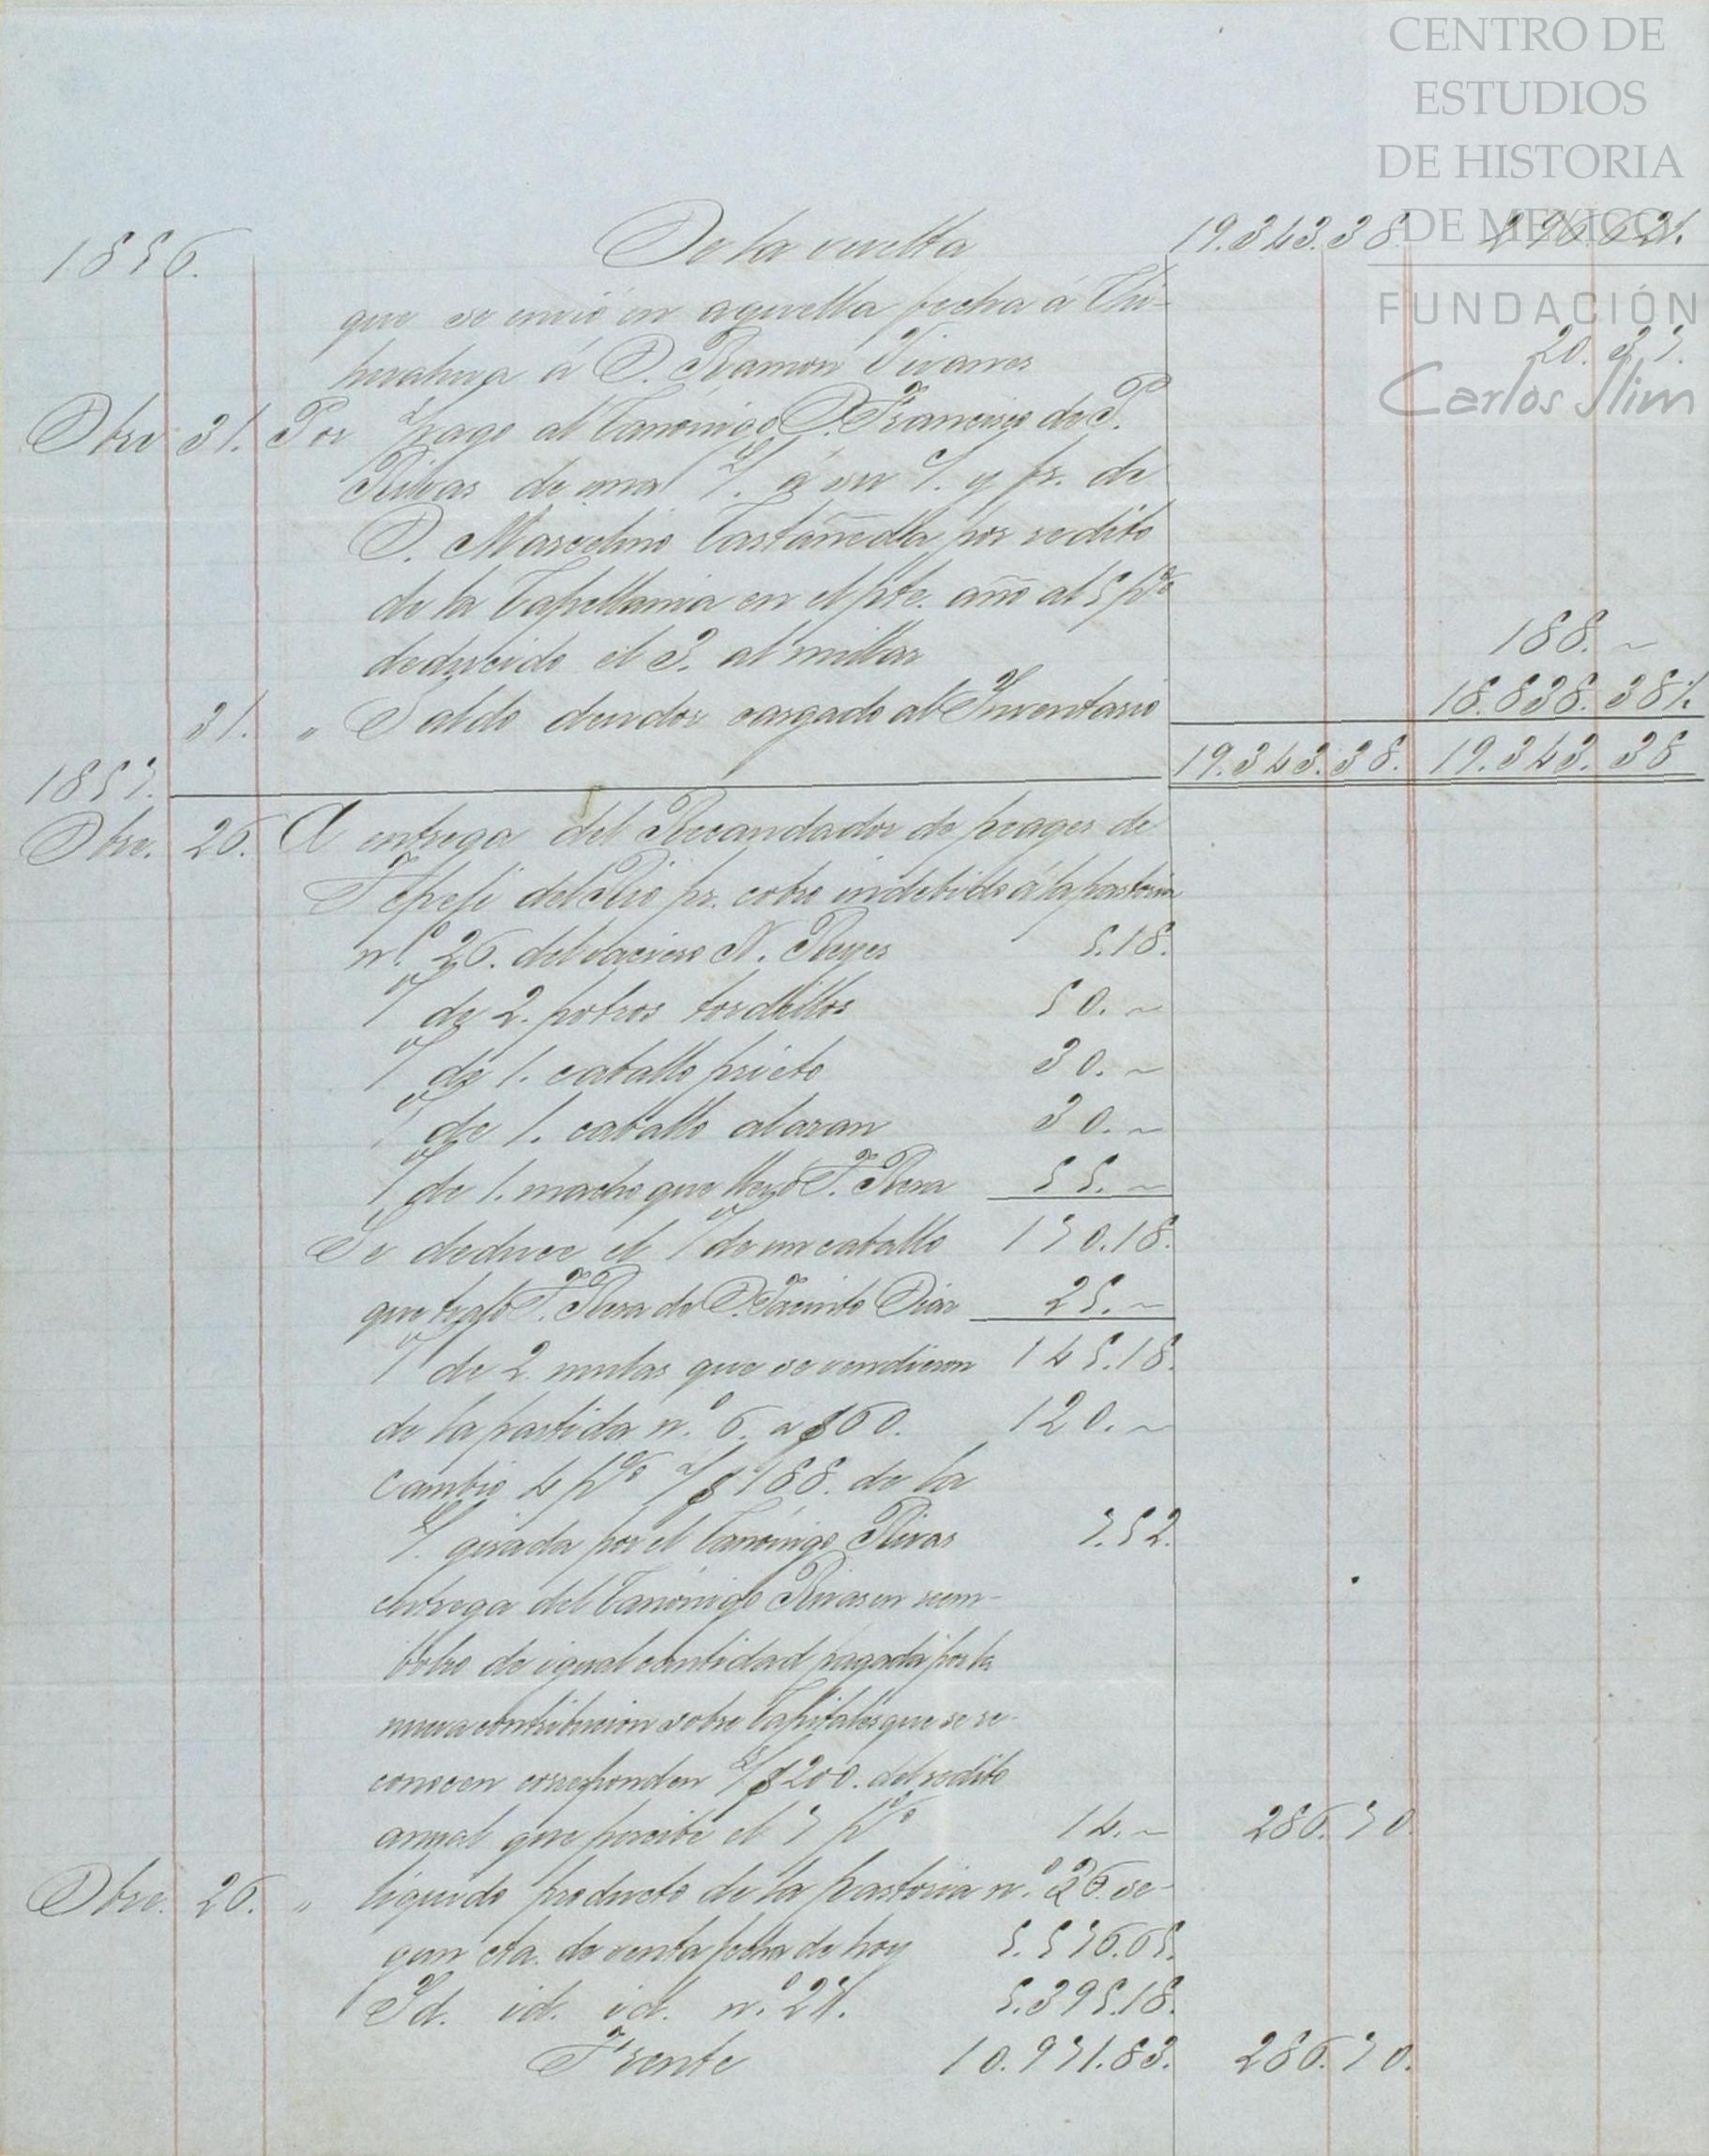 CENTRO DE
ESTUDIOS
DE HISTORIA
DE MEXICO
FUNDACIÓN
Carlos Slim
1856. De la vuelta 19.343.38. 296.62½.
que se envió en aquella fecha á Chi-
huahua á D. Ramon Vivanco 20.37.
Dbre 31. Por pago al Canónigo D. Francisco de P.
Rivas de una £. á su £. y fr. de
D. Marcelino Castañeda por redito
de la Capellania en el pte. año al 5 p%
deducido el 3. al millar 188. ~
31. " Saldo deudor cargado al Inventario 18.838.38½
19.343.38. 19.343.38
1857.
Dbre. 26. A entrega del Recaudador de peages de
Tepeji del Rio pr. cobro indebido á la partida
n.º 26. del vaciero N. Reyes 5.18.
de 2. potros tordillos 50. ~
de 1. caballo prieto 30. ~
de 1. caballo alazan 30. ~
de 1. macho que llevó F. Rosa 55. ~
Se deduce el de un caballo 170.18.
que trajo F. Rosa de D. Jacinto Diaz 25. ~
de 2 mulas que se vendieron 145.18.
de la partida n.º 6. a $60. 120. ~
Cambio 4 p% $188. de la
girada por el Canónigo Rivas 7.52.
entrega del Canónigo Rivas en reem-
bolso de igual cantidad pagada por la
nueva contribucion sobre Capitales que se re-
conocen corresponden $200. del redito
anual que percibe el 7 p% 14. ~ 286.70.
Dbre. 26. " liquido producto de la partida n.º 26. se-
gun cta. de venta fecha de hoy 5.576.65.
Id. id. id. n.º 27. 5.395.18.
Frente 10.971.83. 286.70.